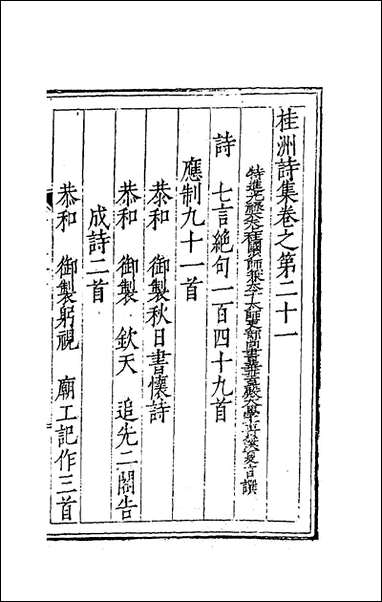 桂洲詩集卷之第二十一
特進光祿大夫上柱國少師兼太子太師吏部尚書華蓋殿大學士貴溪夏言撰
詩　七言絕句一百四十九首
應制九十一首
恭和　御製秋日書懷詩
恭和　御製　欽天　追先二閣告
成詩二首
恭和　御製躬視　廟工記作三首